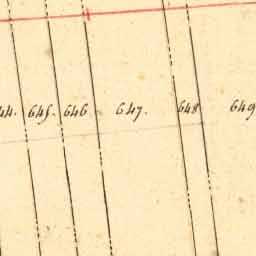 44. 645. 646 647. 648 649